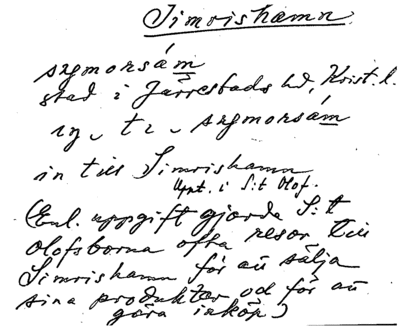 Simrishamn
sımorsám
stad i Järrestads hd, Krist. l.
ın, tı, sımorsám
in till Simrishamn
Uppt. i S:t Olof.
(Enl. uppgift gjorde S:t
Olofsborna ofta resor till
Simrishamn för att sälja
sina produkter och för att
göra inköp)